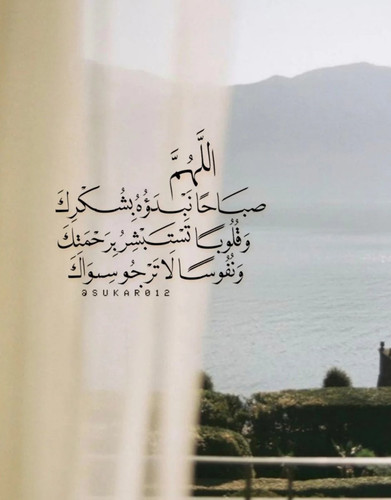 اللَّهُمَّ
صبَاحًا نَبْدَؤُهُ بِشُكْرِكَ
وَقُلُوبًا تَسْتَبْشِرُ بِرَحْمَتِكَ
وَنُفُوسًا لَا تَرْجُو سِوَاكَ
@SUKAR012